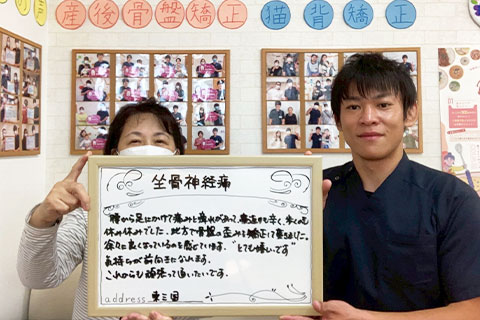 産後骨盤矯正
猫背矯正
坐骨神経痛
腰から足にかけて痛みと痺れがあって、寝返りも辛く、歩くのも
休み休みでした。此方で骨盤の歪みを矯正して頂きました。
徐々に良くなっているのを感じています。"とても嬉しいです"
気持ちが前向きになれます。
これからも頑張って通いたいです。
address 東三国